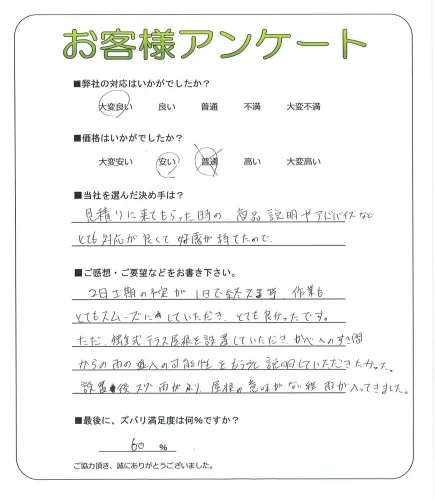 お客様アンケート
■弊社の対応はいかがでしたか?
大変良い 良い 普通 不満 大変不満
■価格はいかがでしたか?
大変安い 安い 普通 高い 大変高い
■当社を選んだ決め手は?
見積りに来てもらった時の、商品説明やアドバイスなど
とても対応が良くて好感が持てたので。
■ご感想・ご要望などをお書き下さい。
2日工期の予定が1日で終える等、作業も
とてもスムーズにしていただき、とても良かったです。
ただ、テラス屋根を設置していただき、のすき間
からの雨の進入の可能性をもう少し説明していただきたかった。
設置後スグ雨がふり、屋根の意味がない程雨が入ってきました。
■最後に、ズバリ満足度は何%ですか?
60 %
ご協力頂き、誠にありがとうございました。